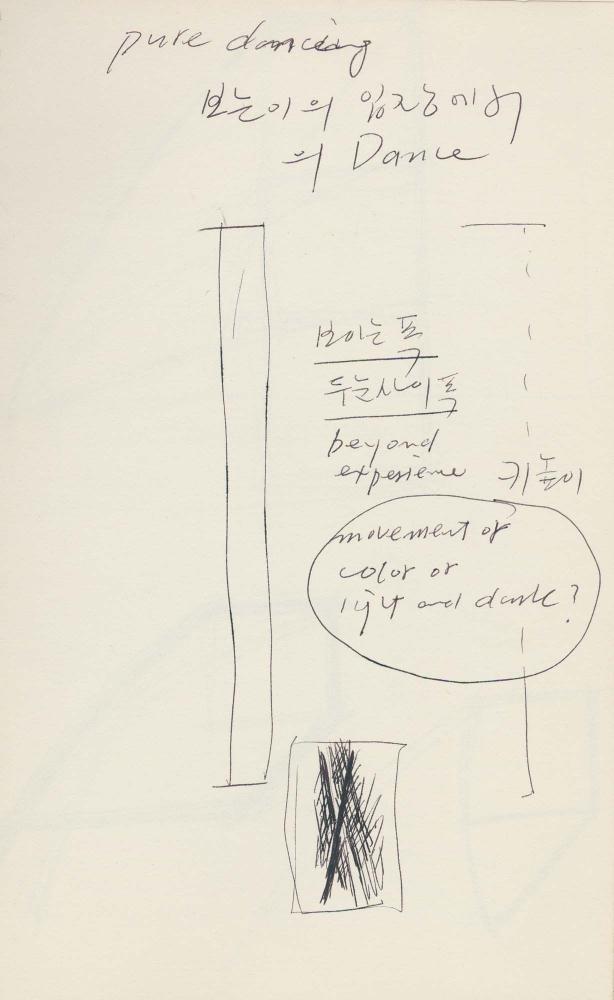 pure dancing
보는이의 입장에서
의 Dance
보이는 폭
두눈사이 폭
beyond
experience
키높이
movement of
color or
light and dark?